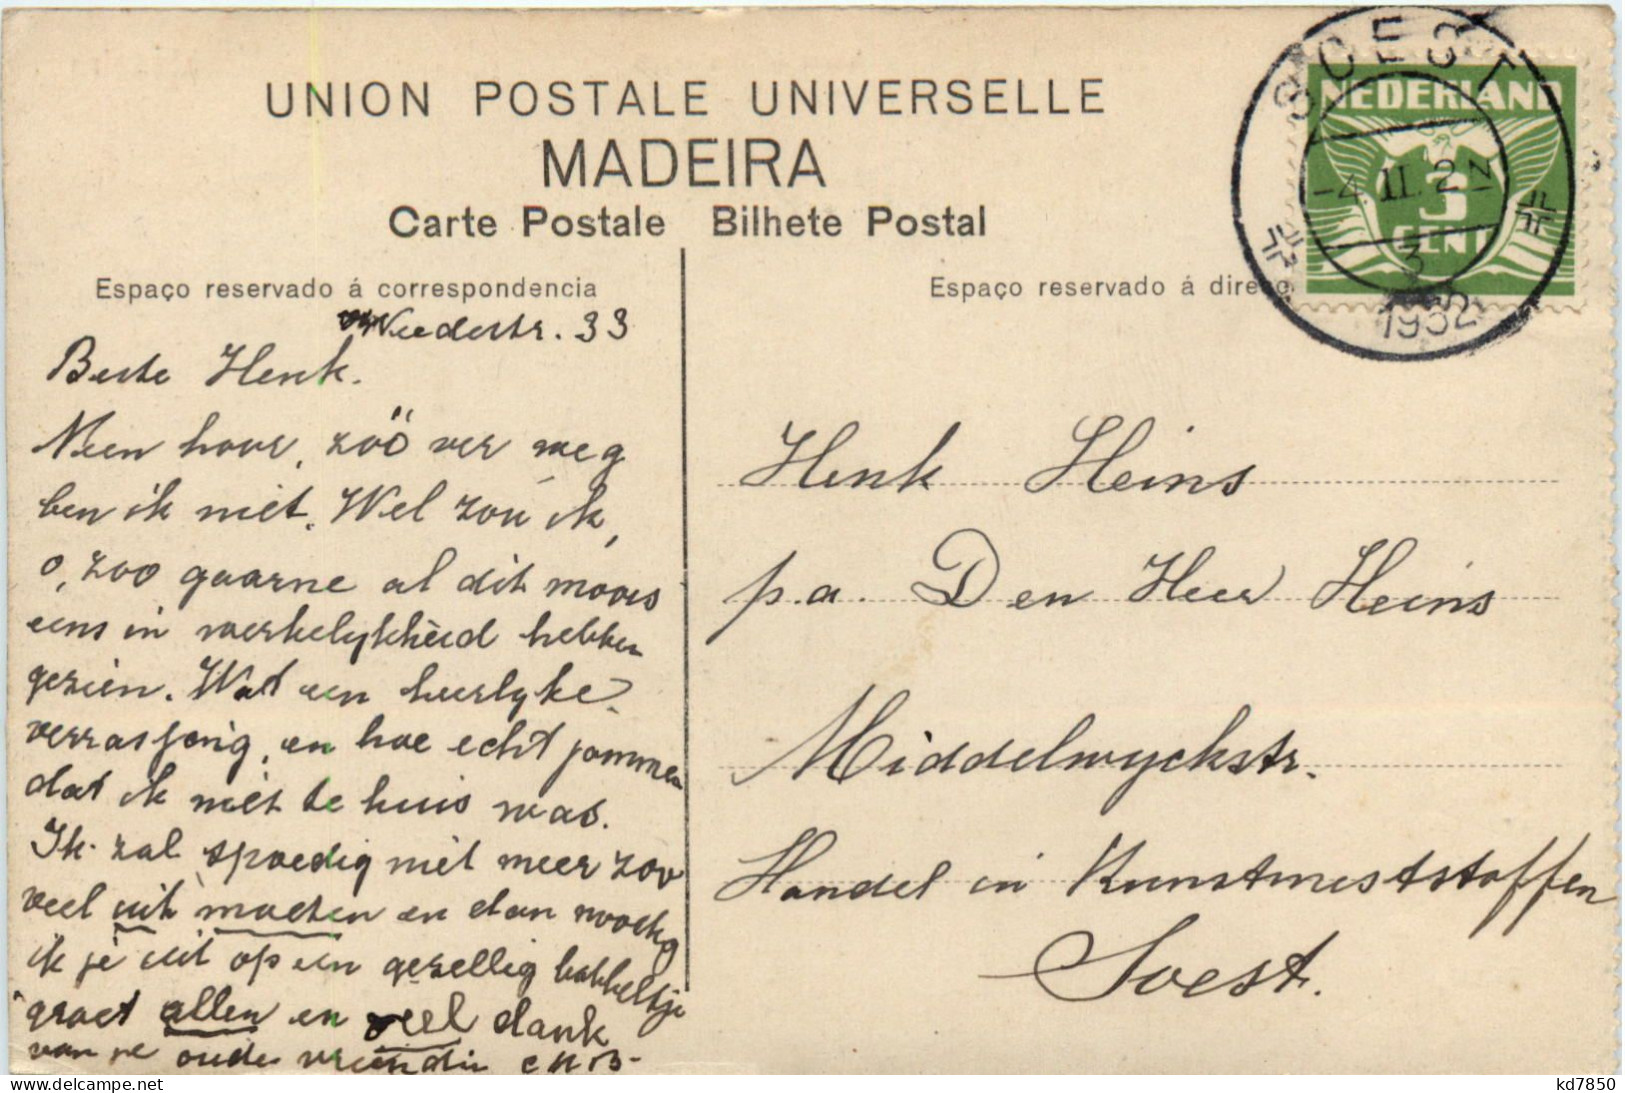 UNION POSTALE UNIVERSELLE
MADEIRA
Carte Postale Bilhete Postal
Espaço reservado á correspondencia
Espaço reservado á direc
SOEST
NEDERLAND
-4.II. 2 N
3
CENT
3
1932
Weedestr. 33
Beste Henk.
Neen hoor, zóó ver weg
ben ik niet. Wel zou ik,
o, zoo gaarne al dit moois
eens in werkelykheid hebben
gezien. Wat een heerlyke
verrassing, en hoe echt jammer
dat ik niet te huis was.
Ik zal spoedig niet meer zoo
veel uit moeten en dan noodig
ik je uit op een gezellig babbeltje
groet allen en veel dank
van je oude vriendin
Henk Heins
p.a. Den Heer Heins
Middelwyckstr.
Handel in Kunstmeststoffen
Soest.
kd7850